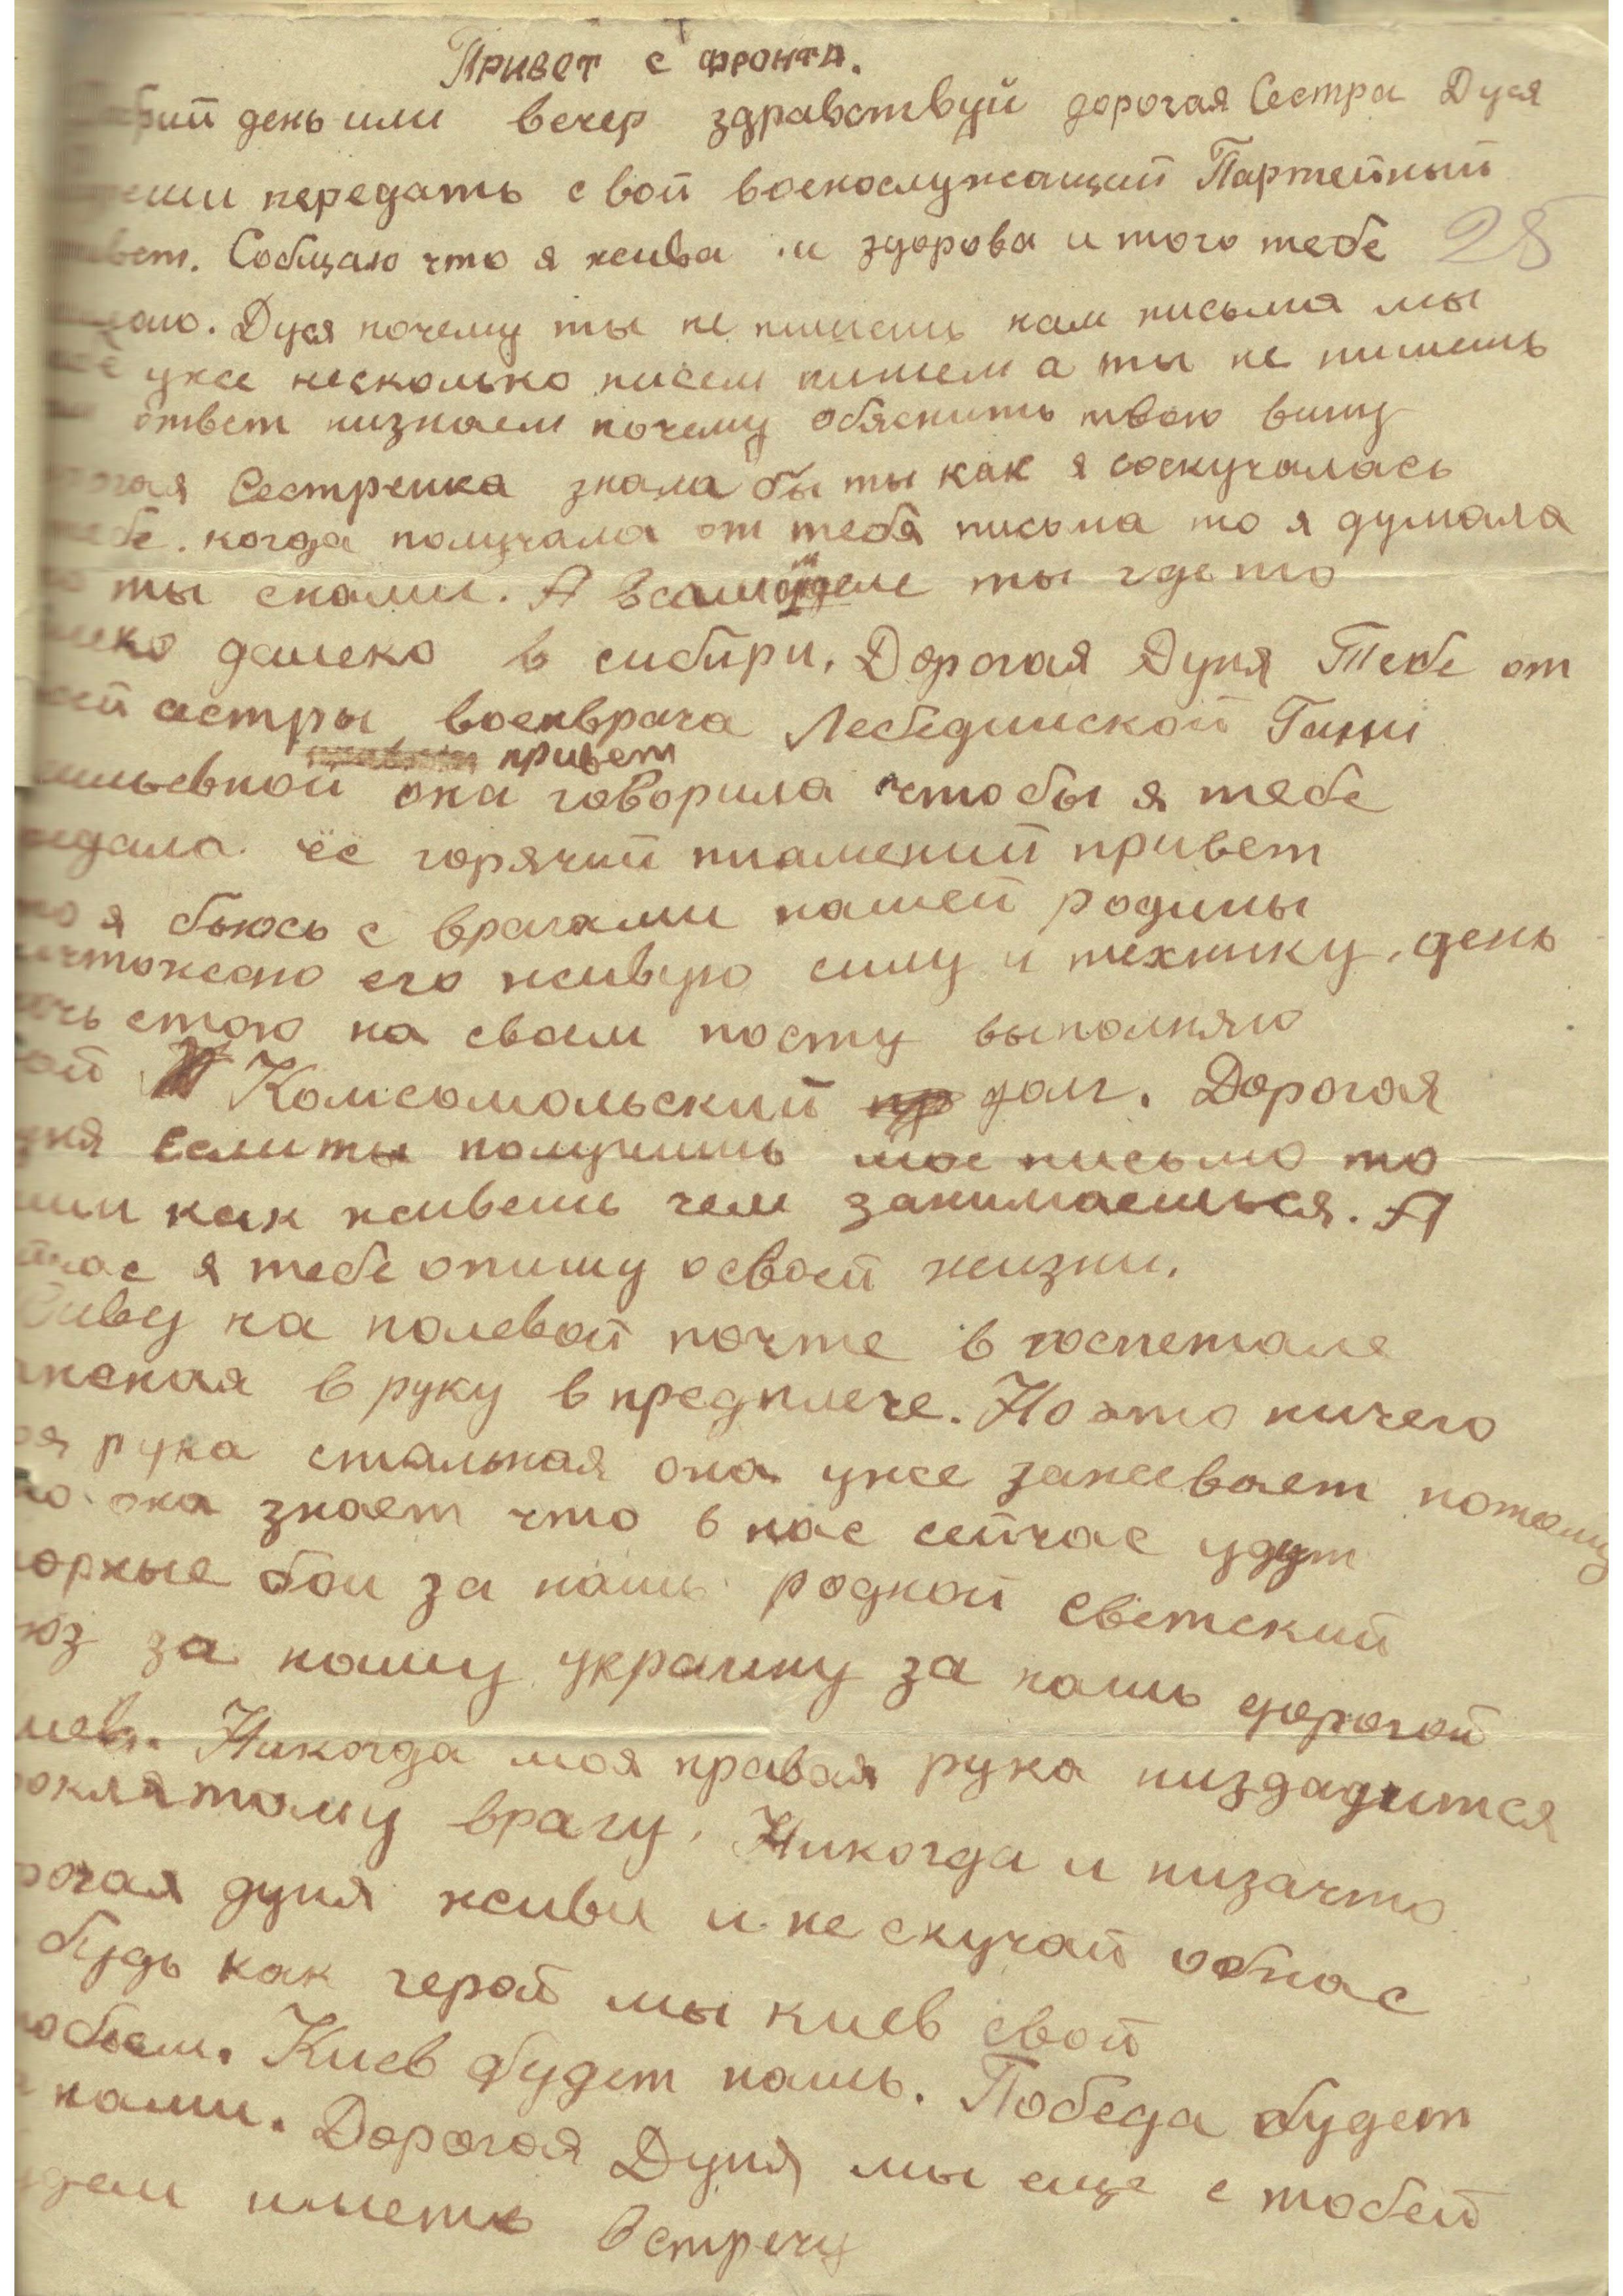 Привет с фронта.
брий день или вечер здравствуй дорогая Сестра Дуся
передать свой воснослужащий Партейный
вет. Собщаю что я жива и здорова и того тебе 28
лаю. Дуся почему ты не пишешь нам письма мы
уже несколько писем пишем а ты не пишешь
ответ низнаем почему обяснить твою вину
огая Сестренка знала бы ты как я соскучалась
тебе. когда получала от тебя письма то я думала
ты снами. А всамом деле ты где то
леко далеко в сибири. Дорогая Дуня Тебе от
ей сестры военврача Лебединской Ганни
привет
сильевной она говорила чтобы я тебе
редала её горячий пламеный привет
то я бьюсь с врагами нашей родины
ичтожаю его живую силу и технику. день
ночь стою на своем посту выполняю
вой Комсомольский долг. Дорогая
уня если ты получишь мое письмо то
иши как живешь чем занимаешься. А
йчас я тебе опишу освоей жизни.
Живу на полевой почте в госпетале
аненая в руку в предплече. Но это ничего
оя рука стальная она уже зажевает потому
то она знает что в нас сейчас идут
порные бои за нашь родной светский
юз за нашу украину за нашь дорогой
иев. Никогда моя правая рука низдадится
роклятому врагу. Никогда и низачто
рогая дуня живи и не скучай обнас
будь как герой мы киев свой
побьем. Киев будет нашь. Победа будет
нами. Дорогая Дуня мы еще с тобей
удем иметь встречу